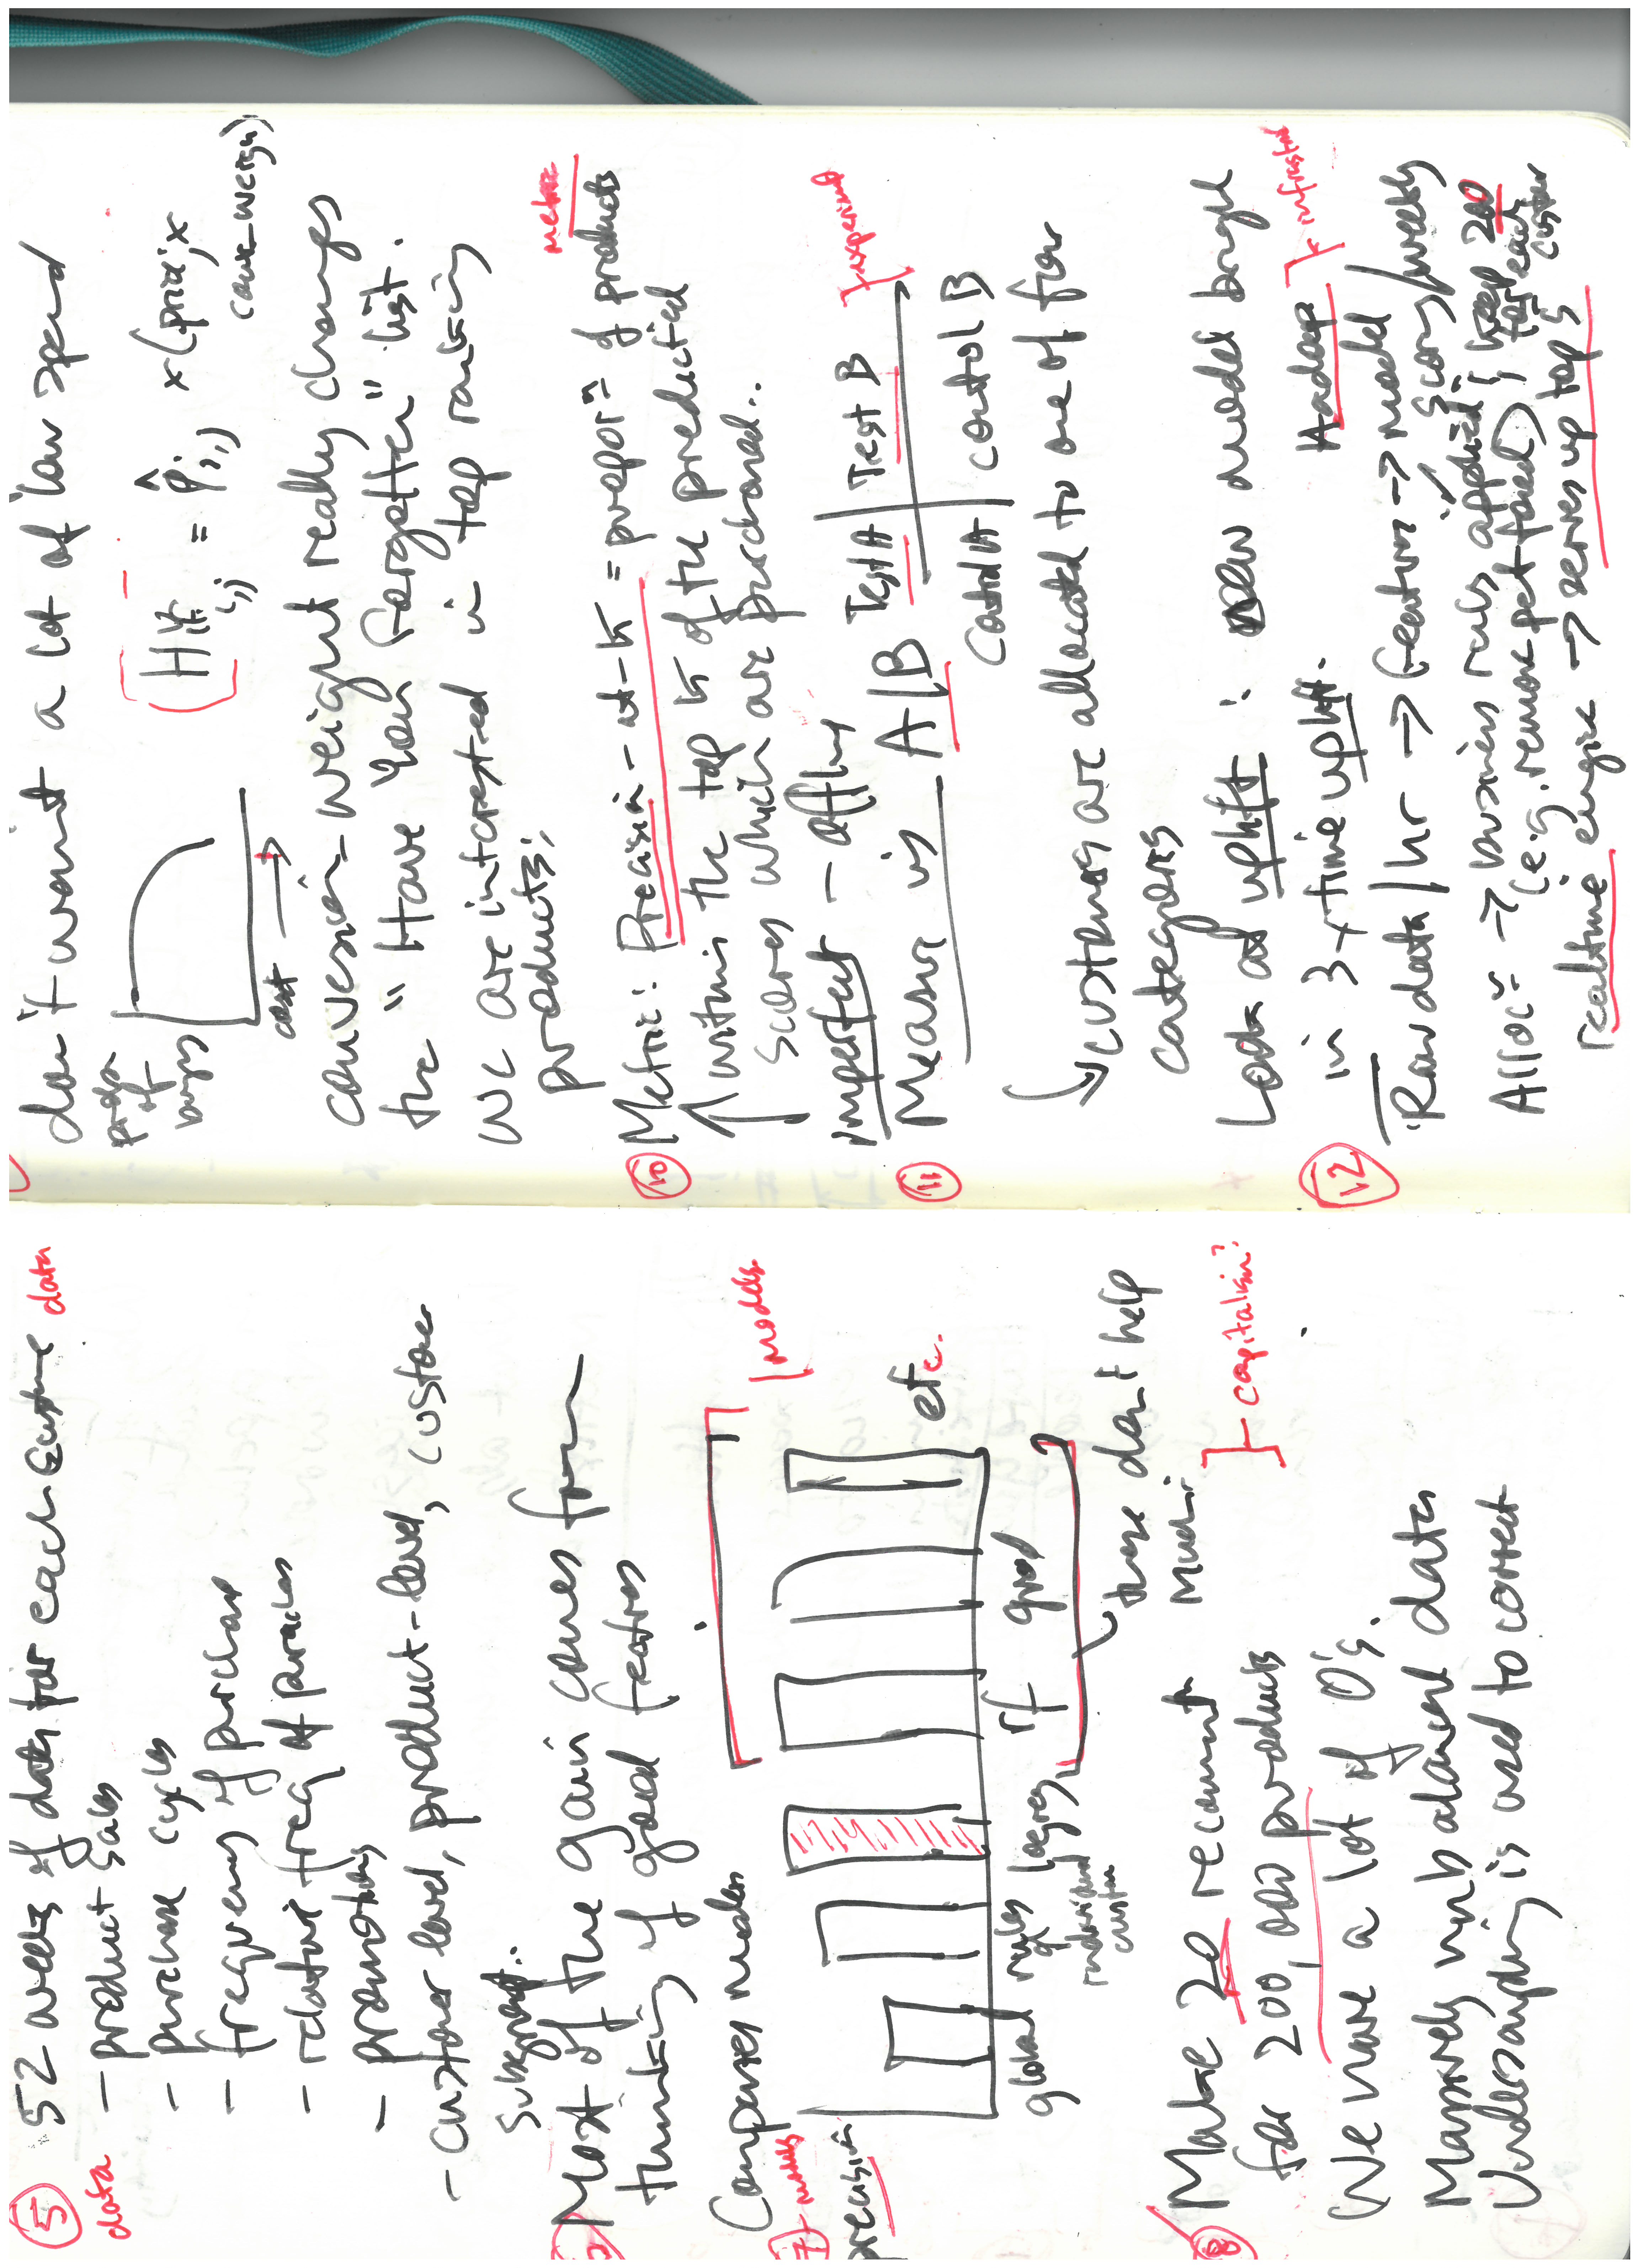 5
52 weeks of data for each customer data
data
- product sales
- purchase cycles
- frequency of purchase
- relative freq of purchase
- promotions
- customer level, product-level, customer
subsegment..
Most of the gain comes from
thinking of good features
7 models
Compares models
models
precision
etc.
global
rules of individual customer
logreg
rf
grad
these don't help
much
8
Make 20 recommendn
for 200,000 products
capitalism?
We have a lot of 0's.
Massively unbalanced data
Undersampling is used to correct
don't want a lot of low spend
propn of buys
cost
Hyfi,j = p̂i,j x (pricej x
conv_weight)
conversion-weight really changes
the "Have You Forgotten" list.
We are interested in top ranking
products;
metric
10
Metric: Precision-at-k = propor^n of products
within the top k of the predicted
scores which are purchased..
imperfect - offline
11
Measure is A|B
Test A Test B
Control A control B
} experiment
customers are allocated to one of four
categories
Look at uplift: new model brought
in 3 x time uplift.
12
Hadoop } infrastrut
Raw data/hr → features → model
↳ scoring/weekly
Alloc^n → business rules applied; keep 200
(e.g. remove pet food) for each
customer
realtime engine → serves up top 5